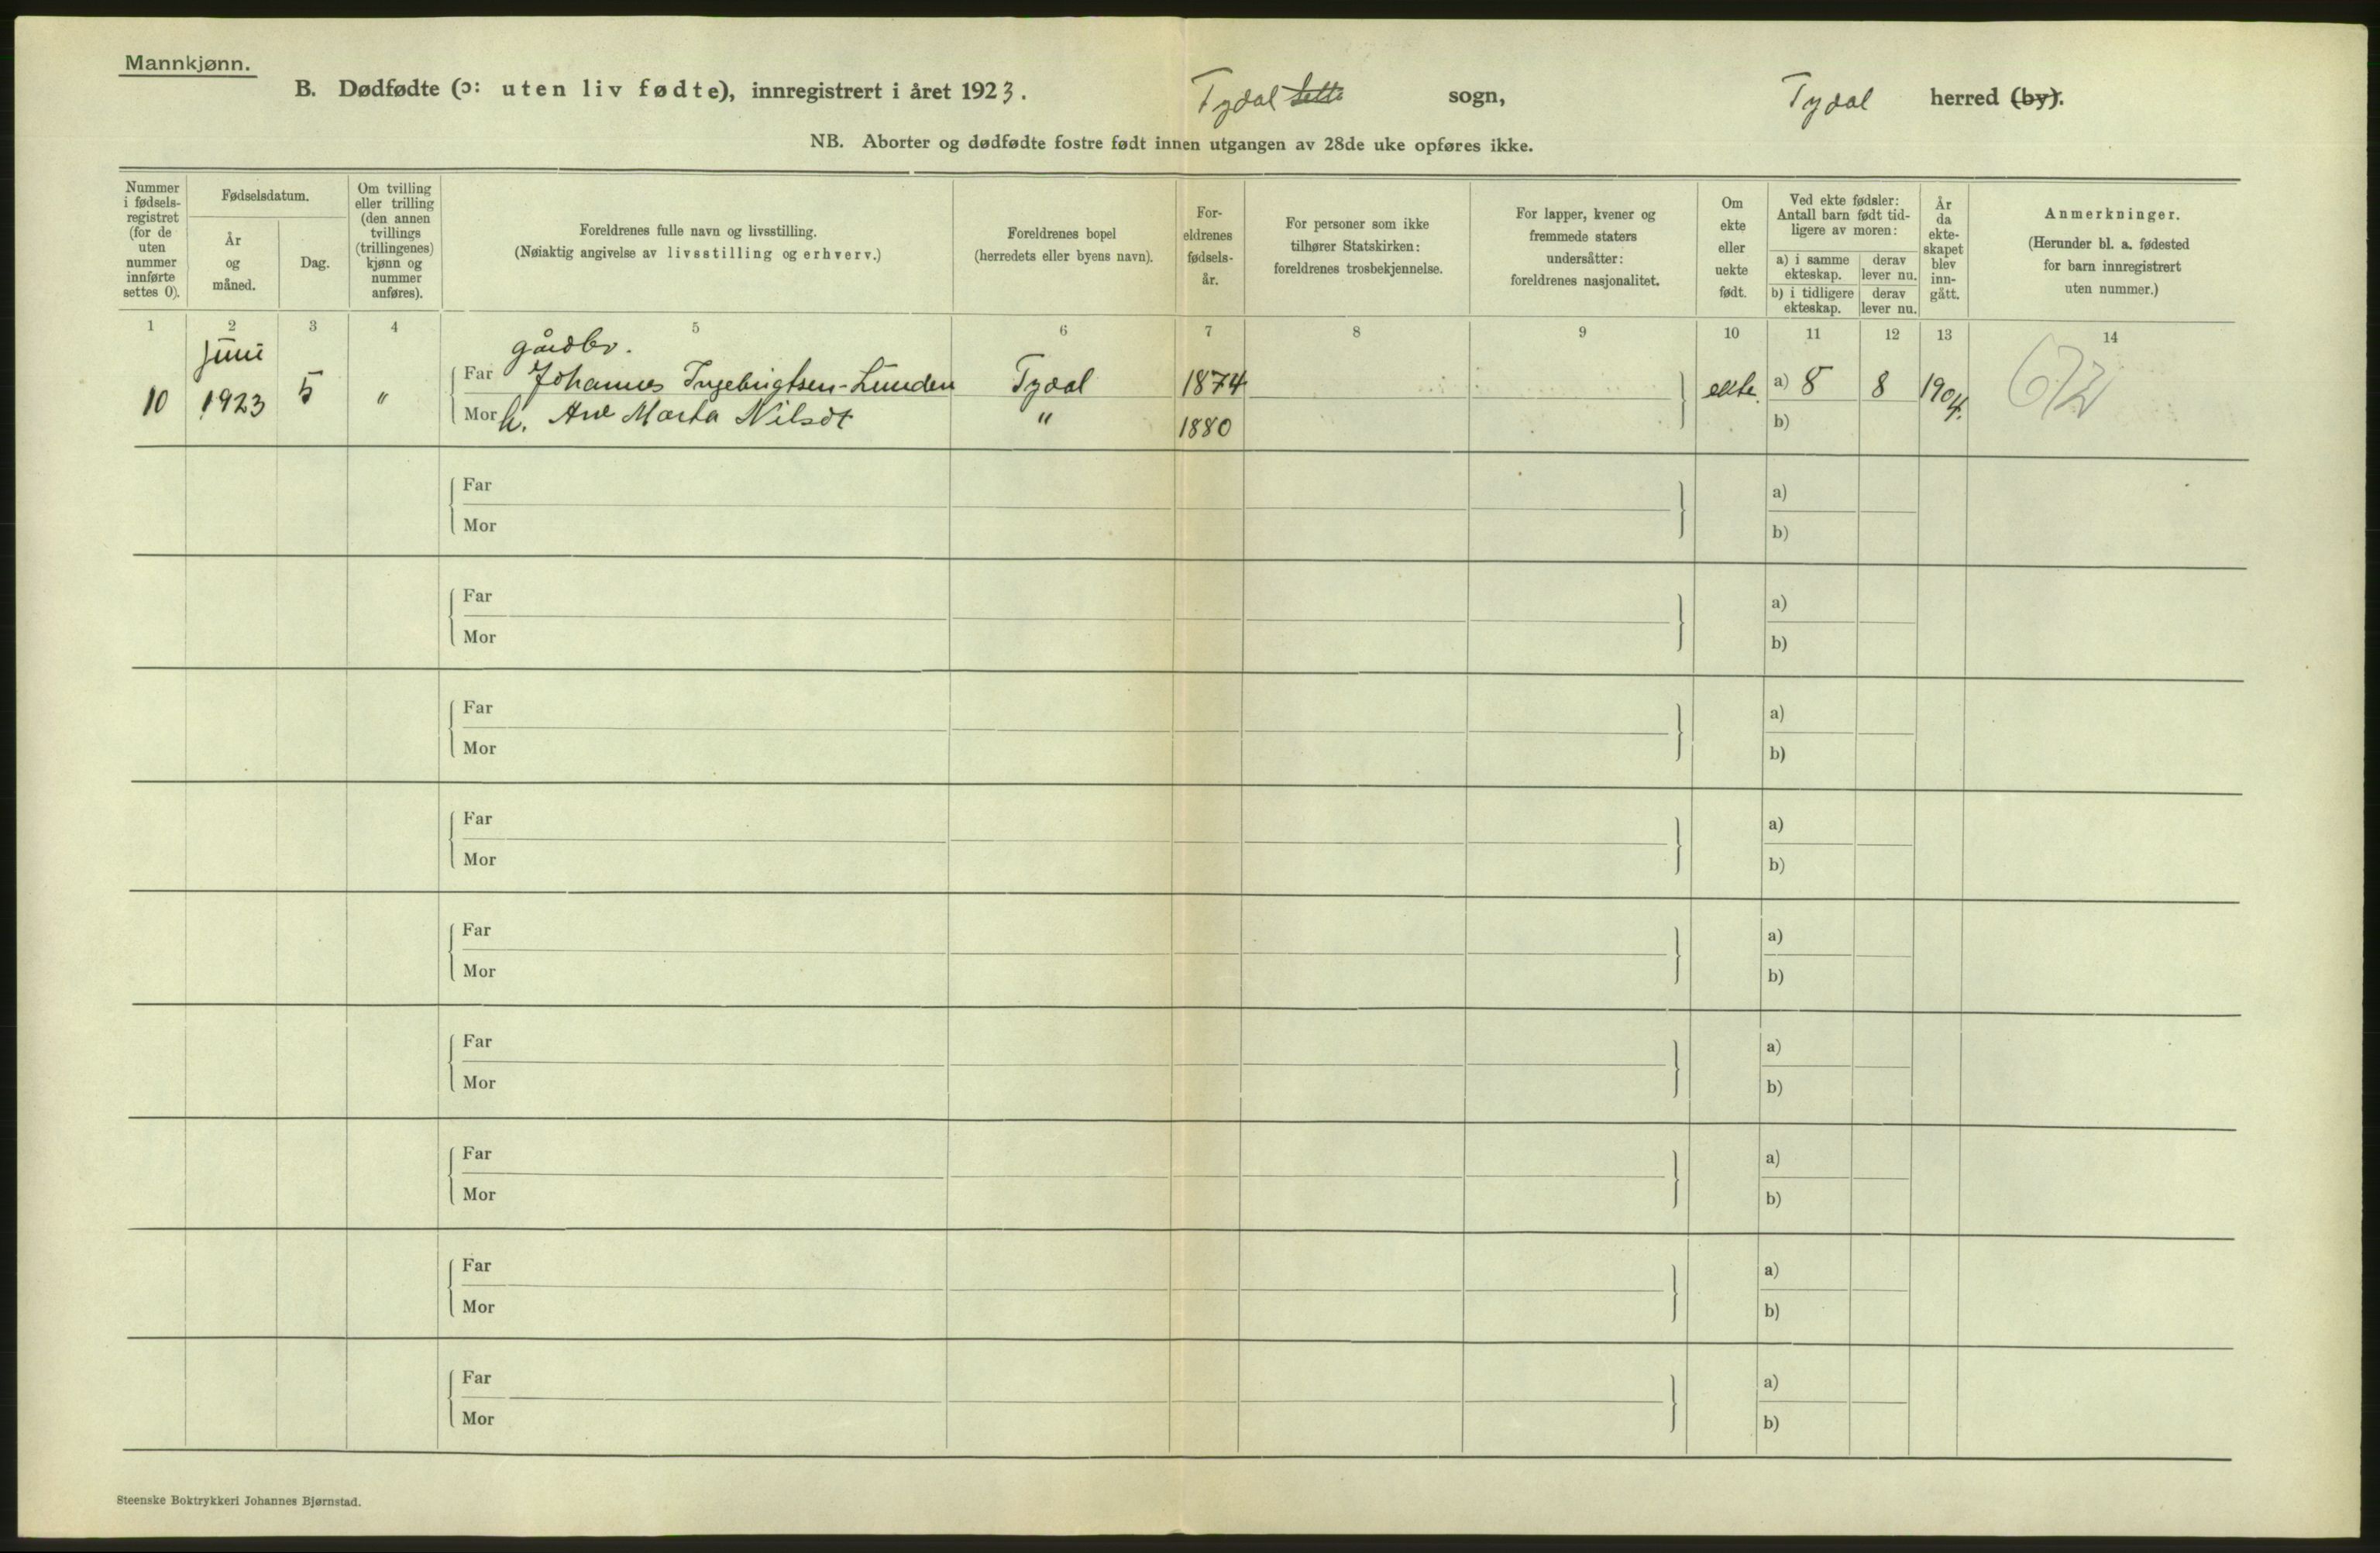 Mannkjønn.
B. Dødfødte (ɔ: uten liv fødte), innregistrert i året 1923. Tydal sogn, Tydal herred (by).
NB. Aborter og dødfødte fostre født innen utgangen av 28de uke opføres ikke.
Nummer i fødsels-registret (for de uten nummer innførte settes 0).
Fødselsdatum.
År og måned.
Dag.
Om tvilling eller trilling (den annen tvillings (trillingenes) kjønn og nummer anføres).
Foreldrenes fulle navn og livsstilling.
(Nøiaktig angivelse av livsstilling og erhverv.)
Foreldrenes bopel
(herredets eller byens navn).
For-eldrenes fødsels-år.
For personer som ikke tilhører Statskirken: foreldrenes trosbekjennelse.
For lapper, kvener og fremmede staters undersåtter: foreldrenes nasjonalitet.
Om ekte eller uekte født.
Ved ekte fødsler: Antall barn født tid-ligere av moren:
a) i samme ekteskap.
derav lever nu.
b) i tidligere ekteskap.
derav lever nu.
År da ekte-skapet blev inn-gått.
Anmerkninger.
(Herunder bl. a. fødested for barn innregistrert uten nummer.)
1 2 3 4 5 6 7 8 9 10 11 12 13 14
juni
gårdbr.
Far Johannes Ingebrigtsen-Lunden Tydal 1874
10 1923 5 " ekte. a) 8 8 1904.
Mor h. Ane Marta Nilsdt " 1880 b)
Far a)
Mor b)
Far a)
Mor b)
Far a)
Mor b)
Far a)
Mor b)
Far a)
Mor b)
Far a)
Mor b)
Far a)
Mor b)
Far a)
Mor b)
Far a)
Mor b)
Steenske Boktrykkeri Johannes Bjørnstad.